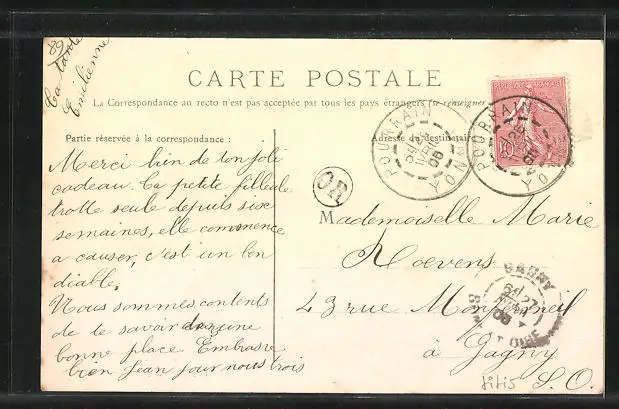 89
Ta tante
Emilienne
CARTE POSTALE
La Correspondance au recto n'est pas acceptée par tous les pays étrangers (se renseigner
Partie réservée à la correspondance :
Adresse du destinataire
Merci bien de ton joli
cadeau. Ta petite filleule
trotte seule depuis six
semaines, elle commence
a causer, c'est un bon
diable.
Nous sommes contents
de te savoir dans une
bonne place. Embrasse
bien Jean pour nous trois
OR
Mademoiselle Marie
Hoevens
43 rue Montfermeil
à Gagny
S. O.
REPUBLIQUE FRANÇAISE
10
POURRAIN
YONNE
POURRAIN
YONNE
GAGNY